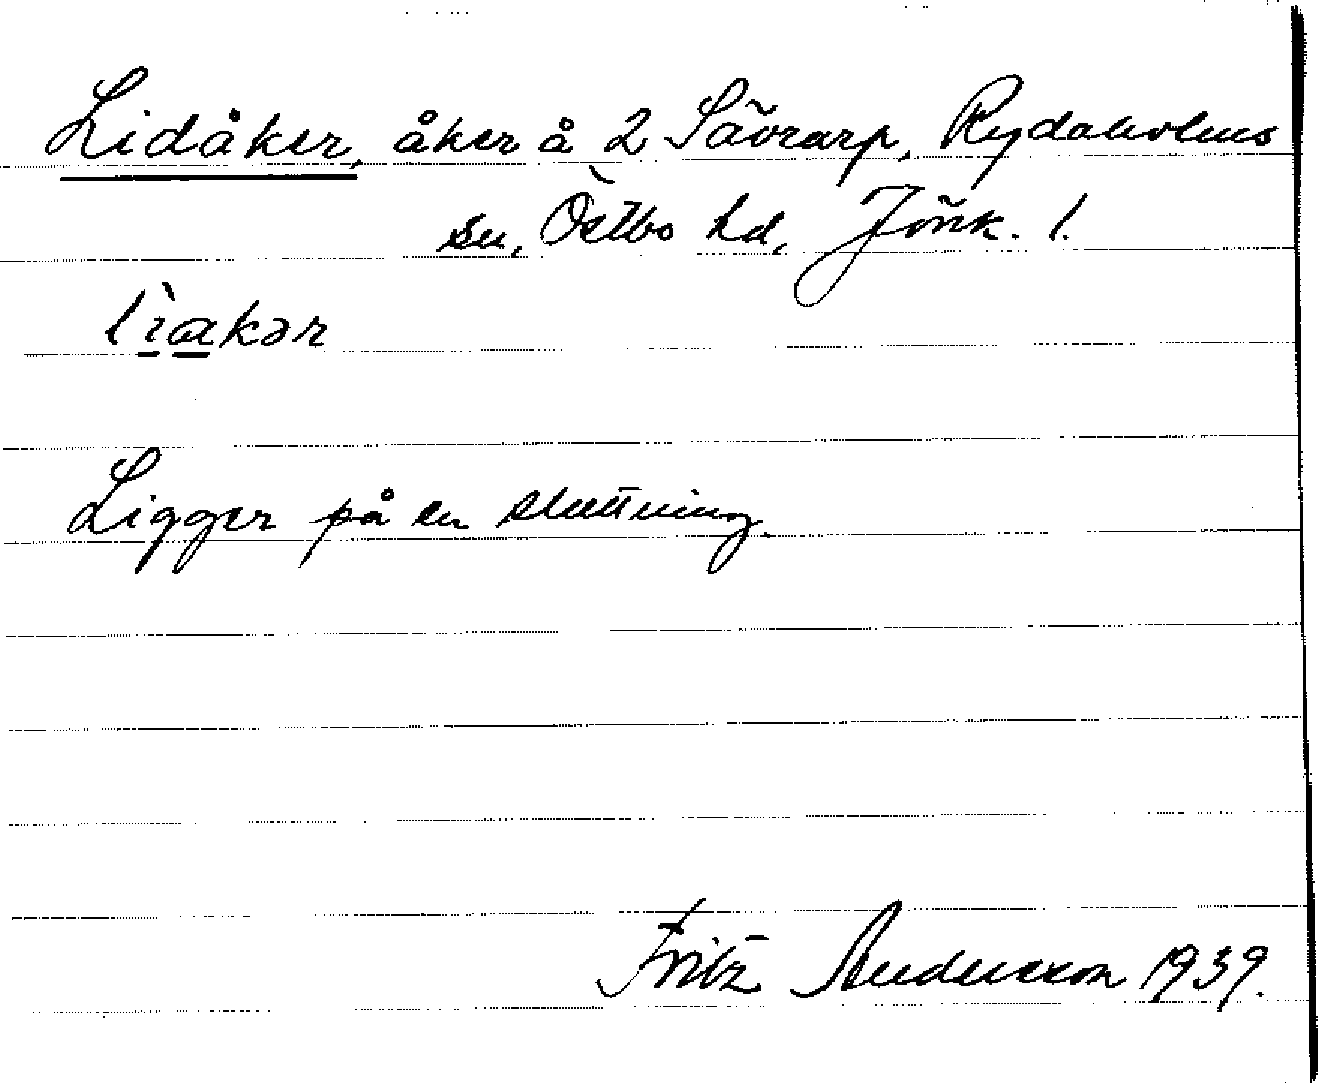 Lidåker, åker å 2 Sävrarp, Rydaholms
sn, Östbo hd, Jönk. l.
lìakər
Ligger på en sluttning.
Fritz Andersson 1939.